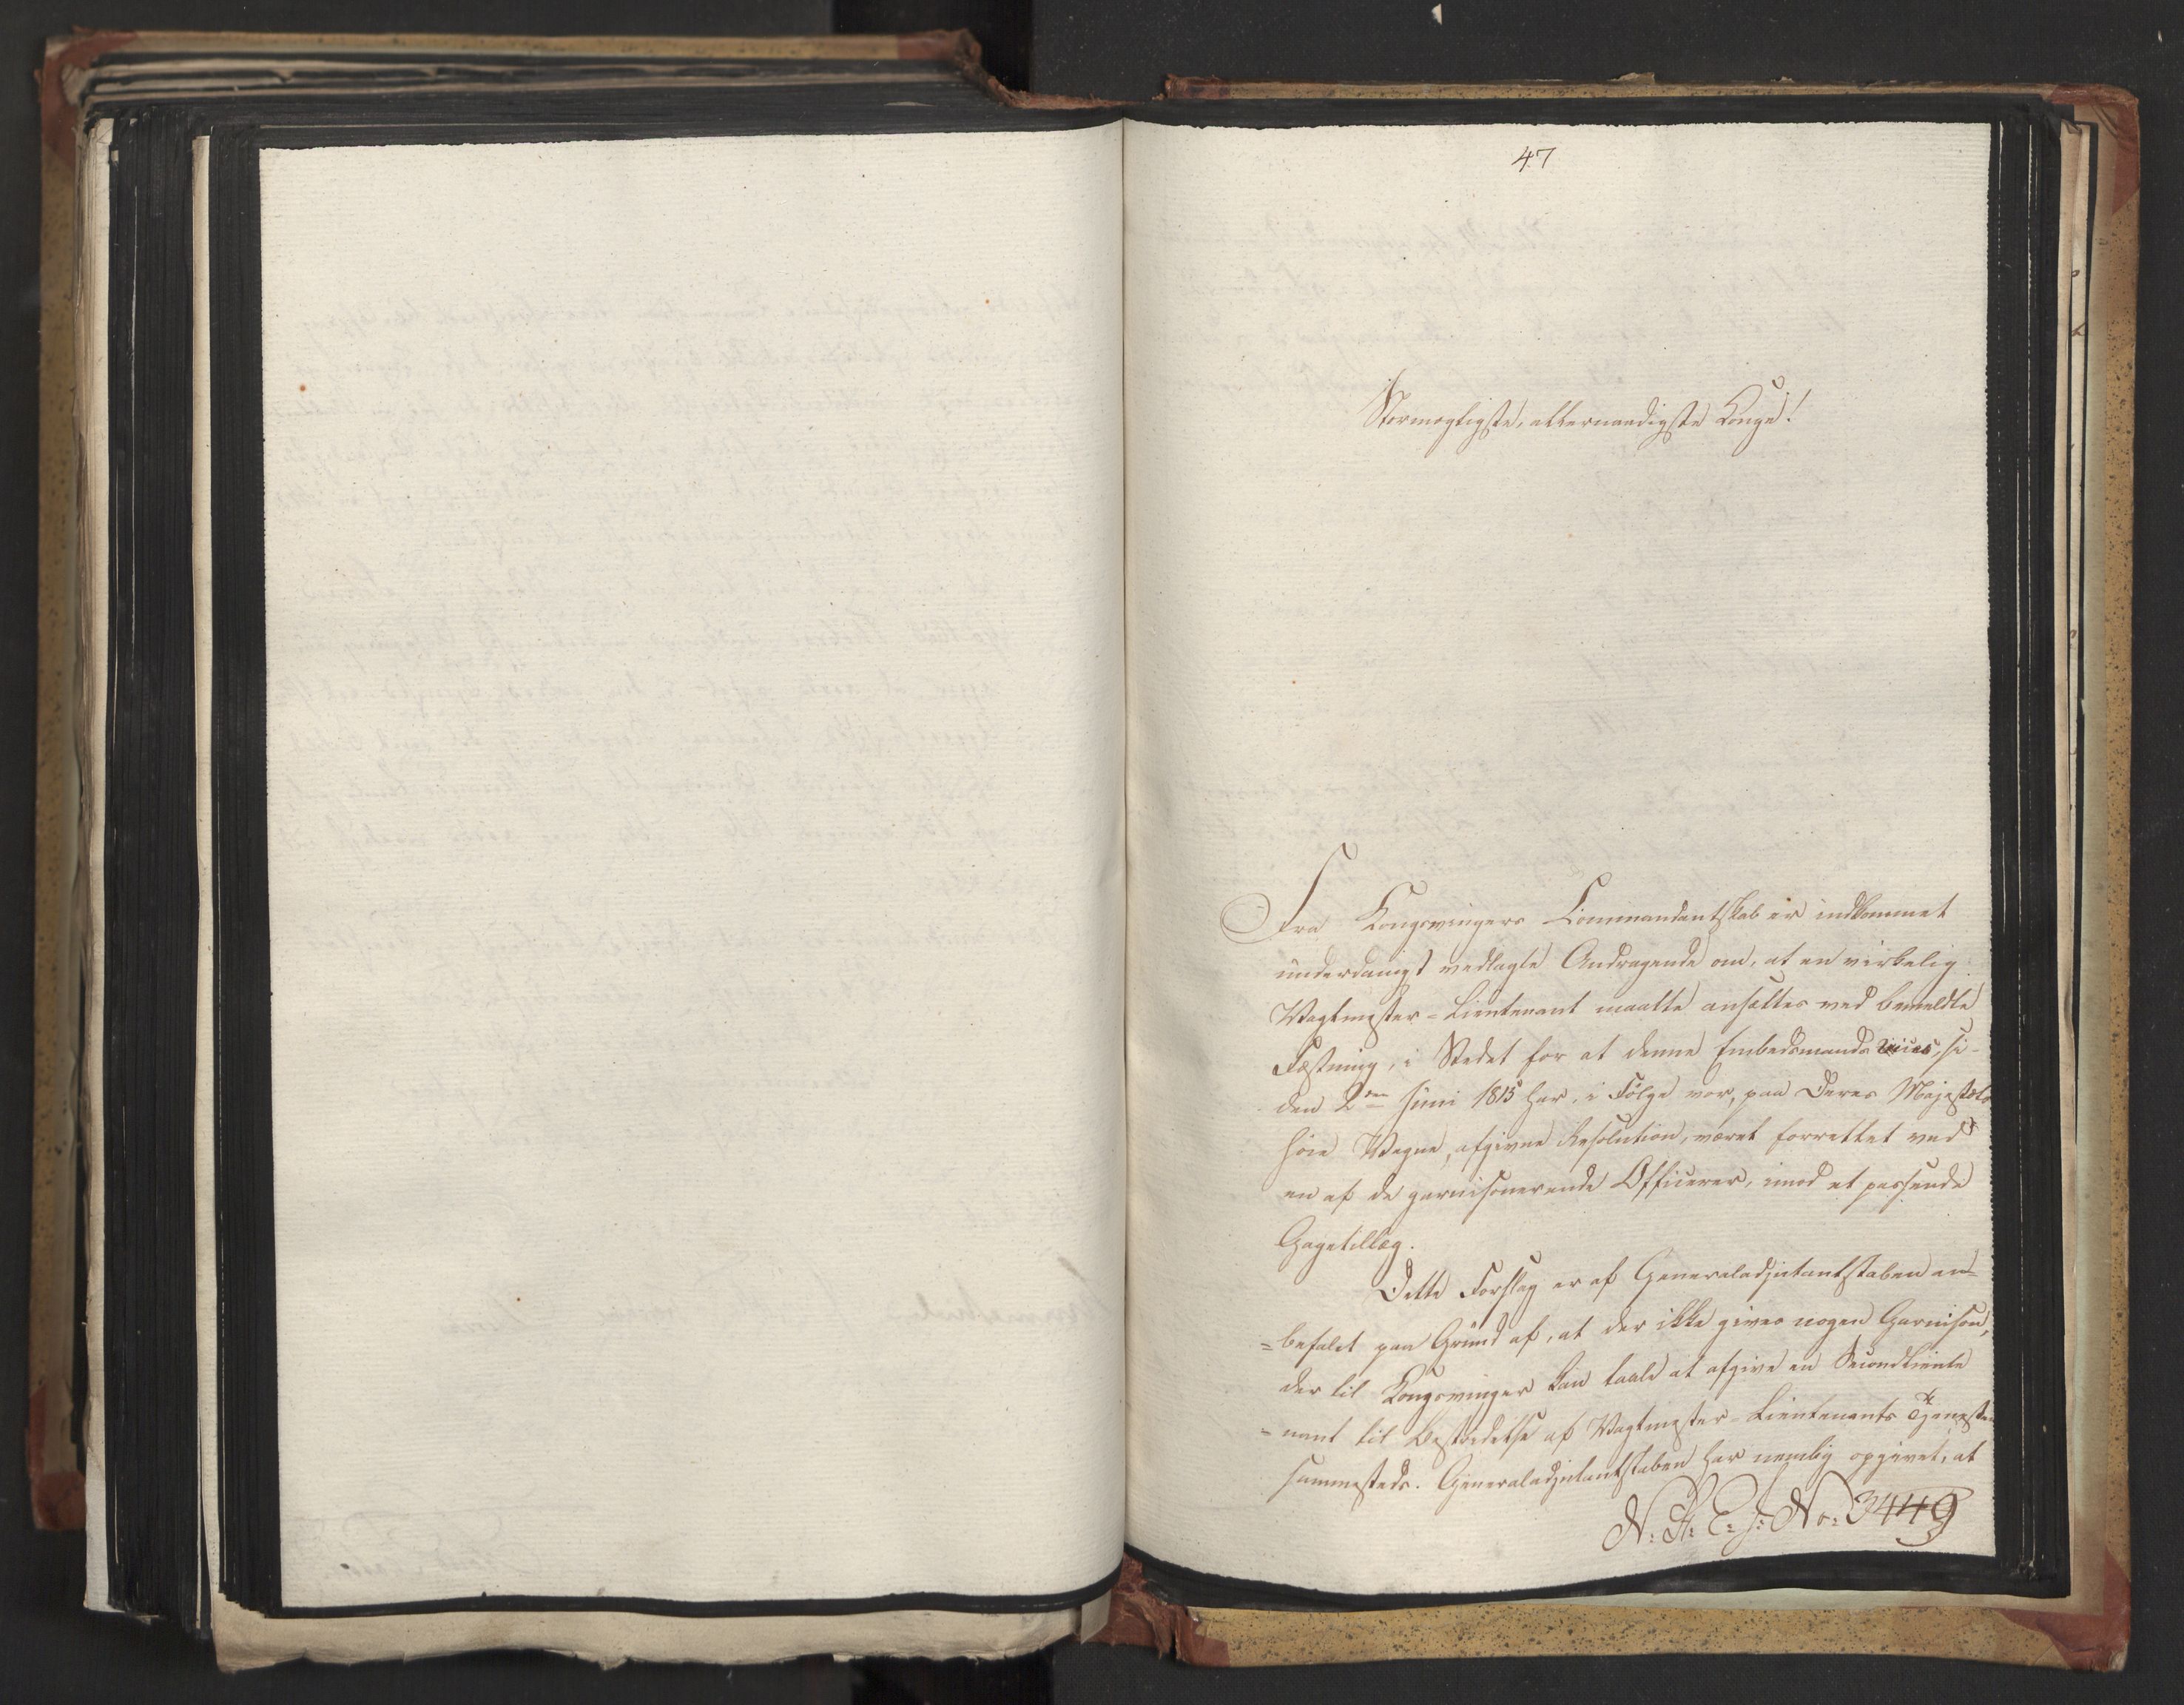 47
Stormægtigste, allernaadigste Konge!
Fra Kongsvingers Commandantskab er indkommet
underdanigst vedlagte Andragende om, at en virkelig
Vagtmester-Lieutenant maatte ansættes ved bemeldte
Fæstning, i Stedet for at denne Embedsmands vices, si-
den 2den Juni 1815 har, i Følge vor, paa Deres Majestæts
høie Vegne, afgivne Resolution, været forrettet ved
en af de garnisonerende Officerer, imod et passende
Gagetillæg.
Dette Forslag er af Generaladjutantstaben an-
=befalet paa Grund af, at der ikke gives nogen Garnison,
der til Kongsvinger kan taale at afgive en Secondlieute
=nant til Bestridelse af Vagtmester-Lieutenants Tjenesten
sammesteds. Generaladjutantstaben har nemlig opgivet, at
N. St: E: J: No: 3449